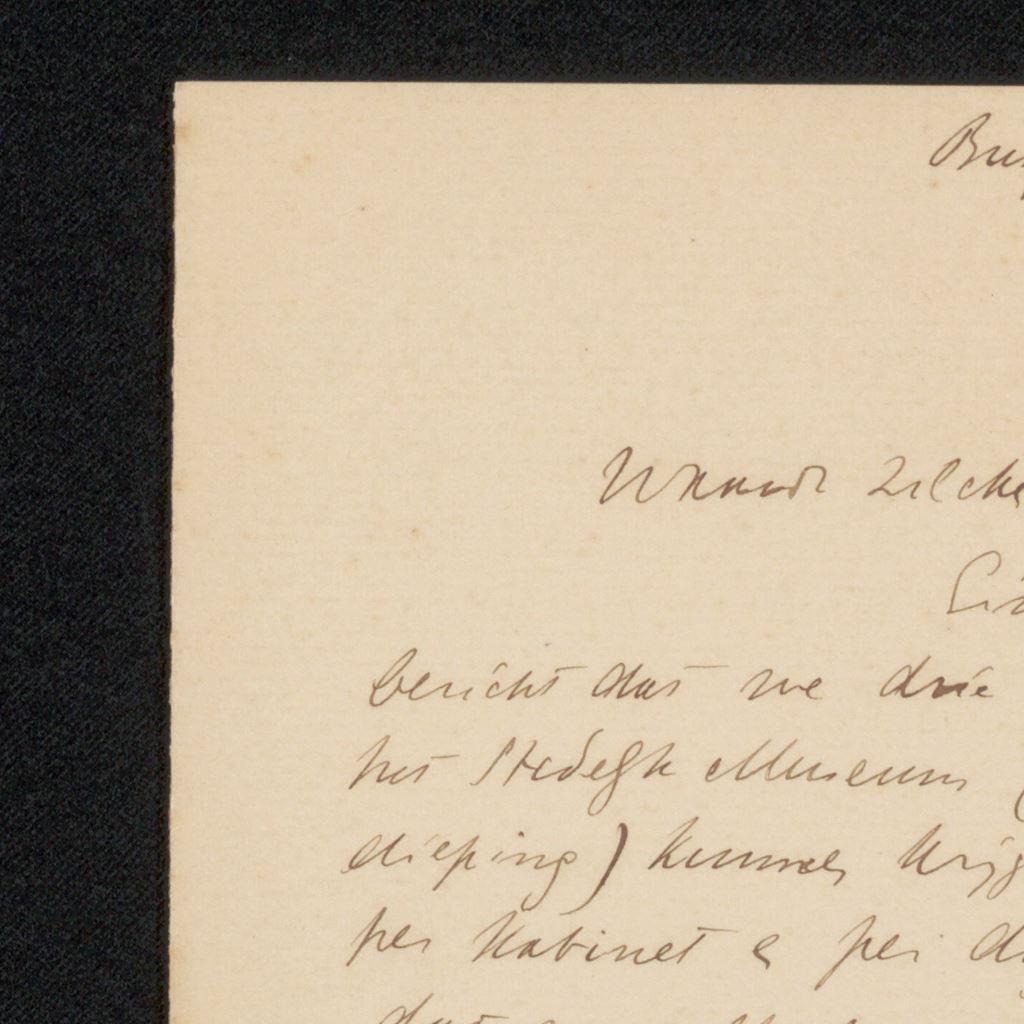 Bus
Waarde Zilcke
bericht dat we drie
het Stedelijk Museum (
dieping) kunnen krijg
per Kabinet e per d
dat